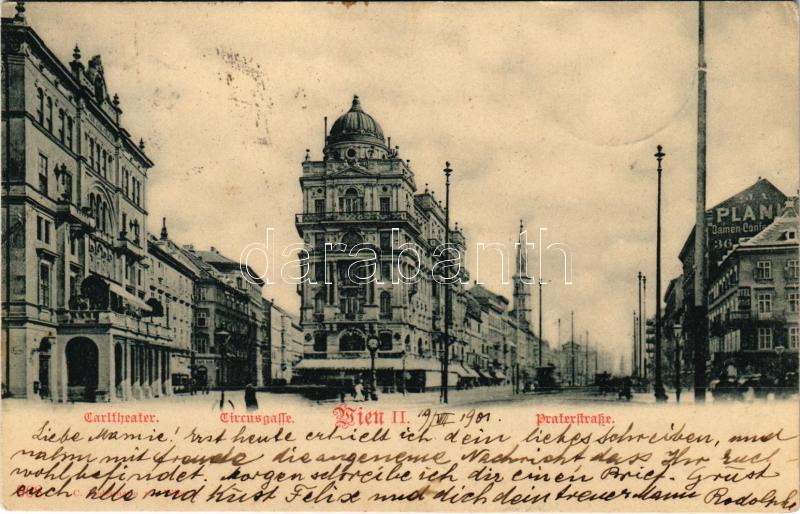 PLANK
Damen-Confe
36
darabanth
Carltheater. Circusgasse. Wien II. 19/VII 1901. Praterstraße.
Liebe Mamie! Erst heute erhielt ich dein liebes Schreiben, und
nahm mit Freude die angenehme Nachricht dass Ihr Euch
wohlbefindet. Morgen schreibe ich dir einen Brief. Grüst
euch alle und Küst Felix und dich dein treuer Mann Rodolphe